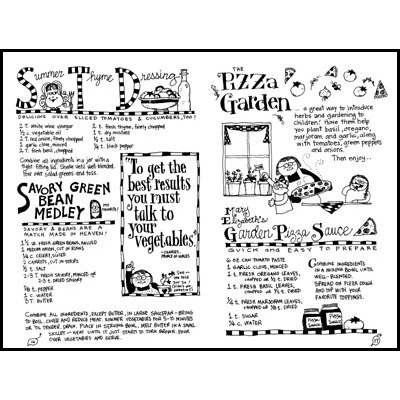 Summer Thyme Dressing
DELICIOUS OVER SLICED TOMATOES & CUCUMBERS, TOO!
2 T. white wine vinegar
½ c. vegetable oil
2 T. red onion, finely chopped
1 garlic clove, minced
2 T. fresh basil, chopped
1 T. fresh thyme, finely chopped
½ t. dry mustard
½ t. salt
¼ t. black pepper
Combine all ingredients in a jar with a
tight-fitting lid. Shake until well-blended.
Pour over salad greens and toss.
SAVORY GREEN
BEAN
MEDLEY
my favorite!
SAVORY & BEANS ARE A
MATCH MADE IN HEAVEN!
1½ LB. FRESH GREEN BEANS, HALVED
1 MEDIUM ONION, CUT IN RINGS
¼ C. CELERY, SLICED
2 CARROTS, CUT IN STRIPS
½ T. SALT
2-3 T. FRESH SAVORY, MINCED OR
2-3 t. DRIED SAVORY
⅛ t. PEPPER
1 C. WATER
3 T. BUTTER
"To get the
best results
you must
talk to
your
vegetables."
-CHARLES,
PRINCE OF WALES
COMBINE ALL INGREDIENTS, EXCEPT BUTTER, IN LARGE SAUCEPAN - BRING
TO BOIL. COVER AND REDUCE HEAT. SIMMER VEGETABLES FOR 5-10 MINUTES
OR 'TIL TENDER. DRAIN. PLACE IN SERVING BOWL. MELT BUTTER IN A SMALL
SKILLET - HEAT UNTIL IT JUST STARTS TO TURN BROWN. POUR
OVER VEGETABLES AND SERVE.
THE
Pizza
Garden
... a great way to introduce
herbs and gardening to
children! Have them help
you plant basil, oregano,
marjoram and garlic, along
with tomatoes, green peppers
and onions.
Then enjoy...
Mary
Elizabeth's
Garden Pizza Sauce
QUICK and EASY TO PREPARE
6 OZ. CAN TOMATO PASTE
1 GARLIC CLOVE, MINCED
1 t. FRESH OREGANO LEAVES,
CHOPPED or ½ t. DRIED
1 t. FRESH BASIL LEAVES,
CHOPPED or ½ t. DRIED
½ t. FRESH MARJORAM LEAVES,
CHOPPED or ¼ t. DRIED
1 t. SUGAR
¼ C. WATER
COMBINE INGREDIENTS
IN A MIXING BOWL UNTIL
WELL-BLENDED.
SPREAD ON PIZZA DOUGH
AND TOP WITH YOUR
FAVORITE TOPPINGS.
Pizza
Sauce
Pizza
Sauce